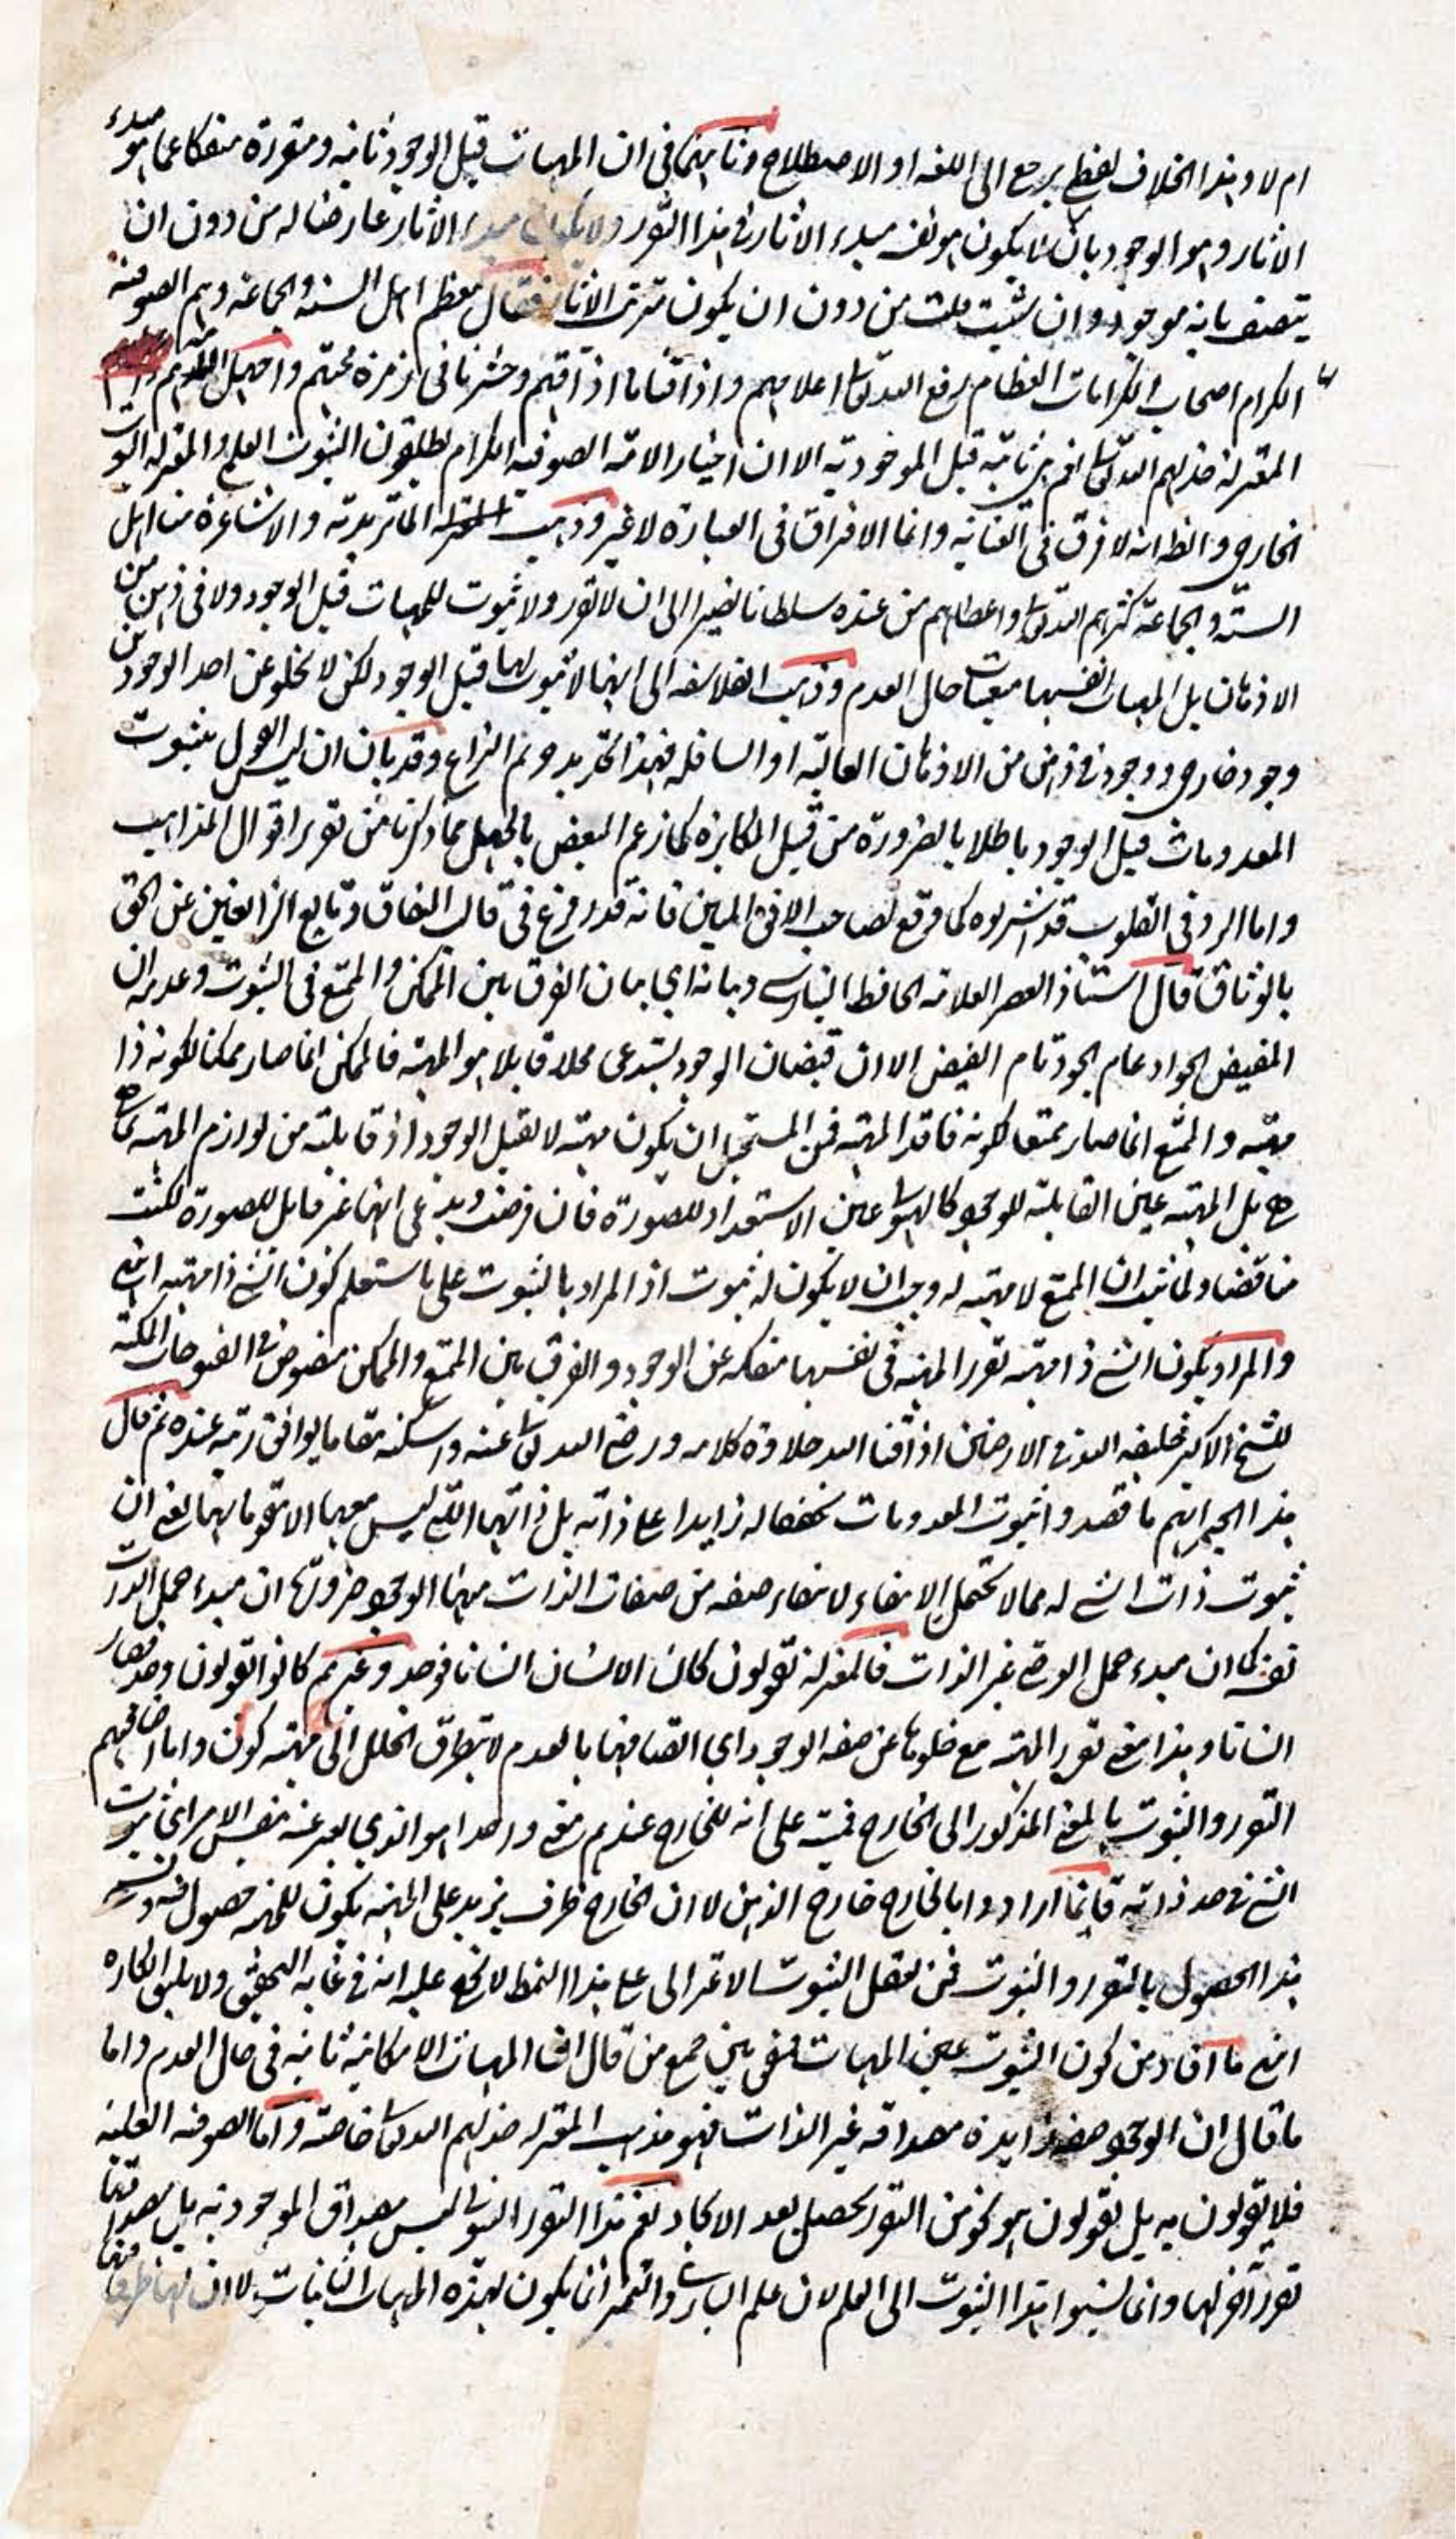 ام لا وهذا الخلاف لفظي يرجع الى اللغة او الاصطلاح وثانيهما في ان المهيات قبل الوجود ثابتة ومتقررة منفكا عما هو مبدء
الاثار وهو الوجود بان لا يكون هو نفس مبدء الاثار في هذا التقرر ولا يكون مبدء الاثار عارضا له من دون ان
يتصف بانه موجود وان شئت قلت من دون ان يكون مترتب الاثار فقال معظم اهل السنة والجماعة وهم الصوفية
الكرام اصحاب الكرامات العظام رفع الله تعالى اعلامهم واذاقنا ما اذاقهم وحشرنا في زمرة محبتهم و
المعتزلة خذلهم الله تعالى نعم هي ثابتة قبل الموجودية الا ان اخيار الامة الصوفية الكرام يطلقون الثبوت العلمي والمعتزلة الثبوت
الخارجي والظ انه لا فرق في العناية وانما الافتراق في العبارة لا غير وذهبت الماتريدية والاشاعرة من اهل
السنة والجماعة كثرهم الله تعالى واعطاهم من عنده سلطانا نصيرا الى ان لا تقرر ولا ثبوت للمهيات قبل الوجود ولا في ذهن من
الاذهان بل المهيات انفسها معيات حال العدم وذهب الفلاسفة الى انها لا ثبوت لها قبل الوجود لكن لا تخلو عن احد الوجودين
وجود خارجي ووجود في ذهن من الاذهان العالية او السافلة فهذا تحرير حريم النزاع وقد بان ان ليس القول بثبوت
المعدومات قبل الوجود باطلا بالضرورة من قبيل المكابرة كما زعم البعض بالجهل مما ذكرنا من تقرير اقوال المذاهب
واما الرد في القلوب قد اشربوه كما وقع لصاحب الافق المبين فانه قد افرغ في قالب النفاق وتابع الزائغين عن الحق
بالوثاق قال استاذ العصر العلامة الحافظ البنارسي وبما نه اي بيان الفرق بين الممكن والممتنع في الثبوت وعدمه ان
المفيض الجواد عام الجود تام الفيض الا ان فيضان الوجود يستدعي محلا قابلا هو المهية فالممكن انما صار ممكنا لكونه ذا
مهية والممتنع انما صار ممتنعا لكونه فاقد المهية فمن المستحيل ان يكون مهية لا تقبل الوجود اذ قابلية من لوازم المهية بما هي
هي بل المهية عين القابلية للوجود كالهيولى عين الاستعداد للصورة فان فرضت وتدعى انها غير قابل للصورة لكنت
مناقضا ولما ثبت ان الممتنع لا مهية له وجب ان لا يكون له ثبوت اذ المراد بالثبوت على ما ستعلم كون الشئ ذا مهية انتهى
والمراد بكون الشئ ذا مهية تقرر المهية في نفسها منفكة عن الوجود والفرق بين الممتنع والممكن منصوص في الفتوحات المكية
للشيخ الاكبر خليفة الله في الارضين اذاقنا الله حلاوة كلامه ورضي الله تعالى عنه واسكنه مقاما يوافق رتبه عنده ثم قال
هذا الحبر انهم ما قصدوا ثبوت المعدومات تحققا له زايدا على ذاته بل ذاتها التي ليس معها الا تقومها بها يعني ان
ثبوت ذات الشئ له مما لا يحتمل الانتفاء لانتفاء صفة من صفات الذات منها الوجود ضرورة ان مبدء حمل الذات
نفسه كما ان مبدء حمل العرضي غير الذات فالمعتزلة يقولون كان الانسان انسانا فوجد وغيرهم كانوا يقولون وجد فصار
انسانا وهذا معنى تقرر المهية مع خلوها عن صفة الوجود اي اتصافها بالعدم لا يتطرق الخلل الى مهية كون واما اضافتهم
التقرر والثبوت بالمعنى المذكور الى الخارج فمبنية على انه للخارج عندهم معنى واحدا هو الذي يعبر عنه بنفس الامر اعني ثبوت
الشئ في حد ذاته فانما ارادوا بالخارج خارج الذهن لا ان الخارج ظرف يزيد على المهية يكون للمهية حصول فيه
هذا الحصول بالتقرر والثبوت فمن تعقل الثبوت الاعتزالي على هذا النمط لا يخفى عليه انه في غاية التحقيق ولا يليق انكاره
انتهى ما افاد من كون الثبوت عين المهيات متفق بين جمع من قال ان المهيات الامكانية ثابتة في حال العدم واما
ما قال ان الوجود صفة زايدة مصداقه غير الذات فهو مذهب المعتزلة خذلهم الله تعالى خاصة واما الصوفية العلية
فلا يقولون به بل يقولون هو نحو من التقرر يحصل بعد الايجاد نعم هذا التقرر الثبوتي ليس مصداق الموجودية بل مصداقها
تقرر آخر لها وانما نسبوا هذا الثبوت الى العلم لان علم الباري والتميز انما يكون لهذه المهيات الثابتات لا ان لها ظرفا